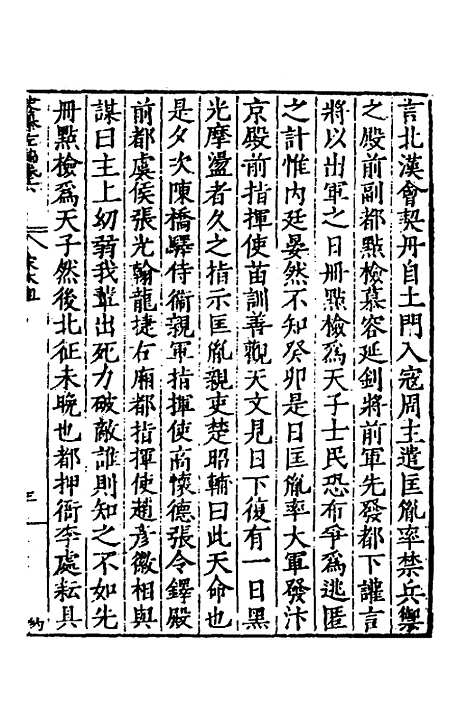 言北漢會契丹自土門入寇周主遣匡胤率禁兵禦
之殿前副都點檢慕容延釗將前軍先發都下讙言
將以出軍之日冊點檢爲天子士民恐布爭爲逃匿
之計惟內廷晏然不知癸卯是日匡胤率大軍發汴
京殿前指揮使苗訓善觀天文見日下復有一日黑
光摩盪者久之指示匡胤親吏楚昭輔曰此天命也
是夕次陳橋驛侍衞親軍指揮使高懷德張令鐸殿
前都虞侯張光翰龍捷右廂都指揮使趙彥徽相與
謀曰主上幼弱我輩出死力破敵誰則知之不如先
冊點檢爲天子然後北征未晚也都押衙李處耘具
三